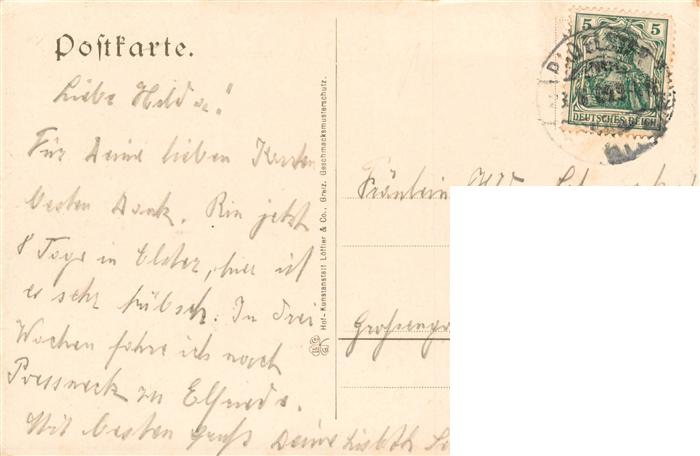 Postkarte.
Liebe Hilde!
Für Deine lieben Karten
besten Dank. Bin jetzt
8 Tage in Elster, hier ist
es sehr hübsch. In drei
Wochen fahre ich nach
Poessneck zu Elfriede.
Mit besten Gruß Deine Lisbeth
Hof-Kunstanstalt Löffler & Co., Greiz. Geschmacksmusterschutz.
5 5
DEUTSCHES REICH
Fräulein